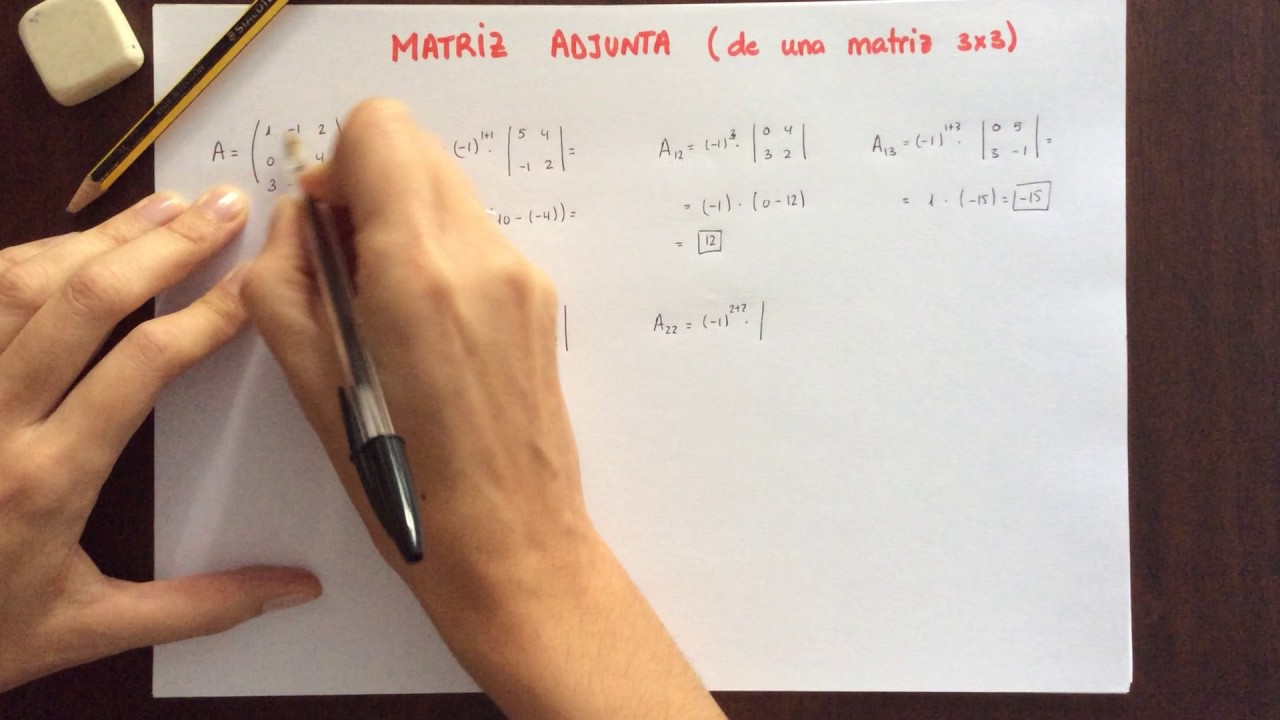 MATRIZ ADJUNTA (de una matriz 3x3)
A = ( 1 -1 2
0 4
3
(-1)^1+1 · | 5 4 |
| -1 2 | =
10 - (-4)) =
A12 = (-1)^3 · | 0 4 |
| 3 2 |
= (-1) · (0-12)
= 12
A13 = (-1)^1+3 · | 0 5 |
| 3 -1 | =
= 1 · (-15) = -15
|
A22 = (-1)^2+2 · |